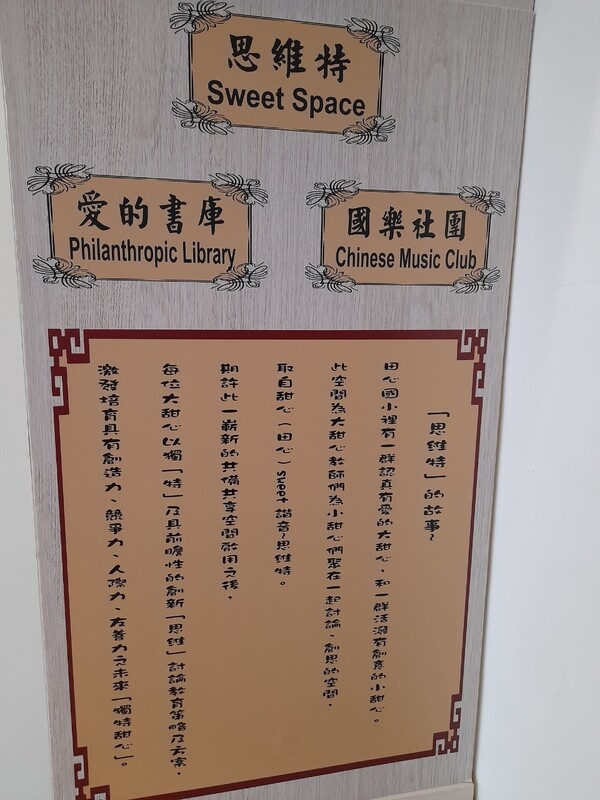 思維特
Sweet Space
愛的書庫
Philanthropic Library
國樂社團
Chinese Music Club
「思維特」的故事~
田心國小裡有一群認真有愛的大甜心，和一群活潑有創意的小甜心。
此空間為大甜心教師們為小甜心們聚在一起討論、創思的空間，
取自甜心（田心）sweet 諧音~思維特。
期許此一嶄新的共備共享空間啟用之後，
每位大甜心以獨「特」及具前瞻性的創新「思維」討論教育策略及方案，
激發培育具有創造力、競爭力、人際力、友善力之未來「獨特甜心」。